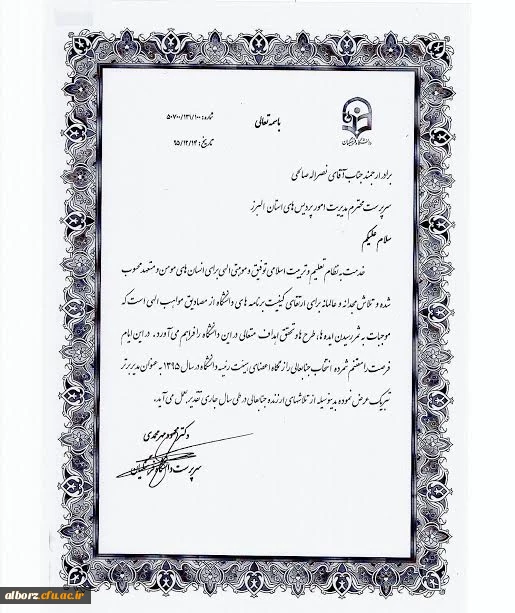 باسمه تعالی
شماره: ۵۰۷۰۰/۱۳۱/۱۰۰
تاریخ: ۹۵/۱۲/۱۴
دانشگاه فرهنگیان
برادر ارجمند جناب آقای نصراله صالحی
سرپرست محترم مدیریت امور پردیس های استان البرز
سلام علیکم
خدمت به نظام تعلیم و تربیت اسلامی توفیق و موهبتی الهی برای انسان های مومن و متعهد محسوب
شده و تلاش مجدانه و عالمانه برای ارتقای کیفیت برنامه های دانشگاه از مصادیق مواهب الهی است که
موجبات به ثمر رسیدن ایده ها، طرح ها و تحقق اهداف متعالی در این دانشگاه را فراهم می آورد. در این ایام
فرصت را مغتنم شمرده انتخاب جنابعالی را از نگاه اعضای هیئت رئیسه دانشگاه در سال ۱۳۹۵ به عنوان مدیر برتر
تبریک عرض نموده بدینوسیله از تلاشهای ارزنده جنابعالی در طی سال جاری تقدیر بعمل می آید.
دکتر محمود مهرمحمدی
سرپرست دانشگاه فرهنگیان
alborz.cfu.ac.ir